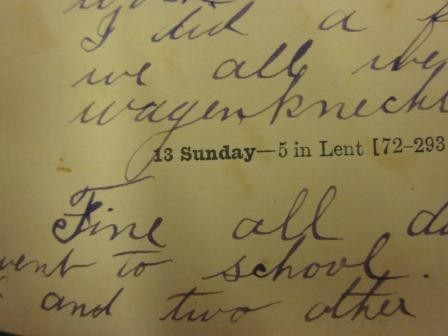 I did a
we all we
wagenknecht
13 Sunday—5 in Lent [72-293
Fine all da
went to school.
and two other